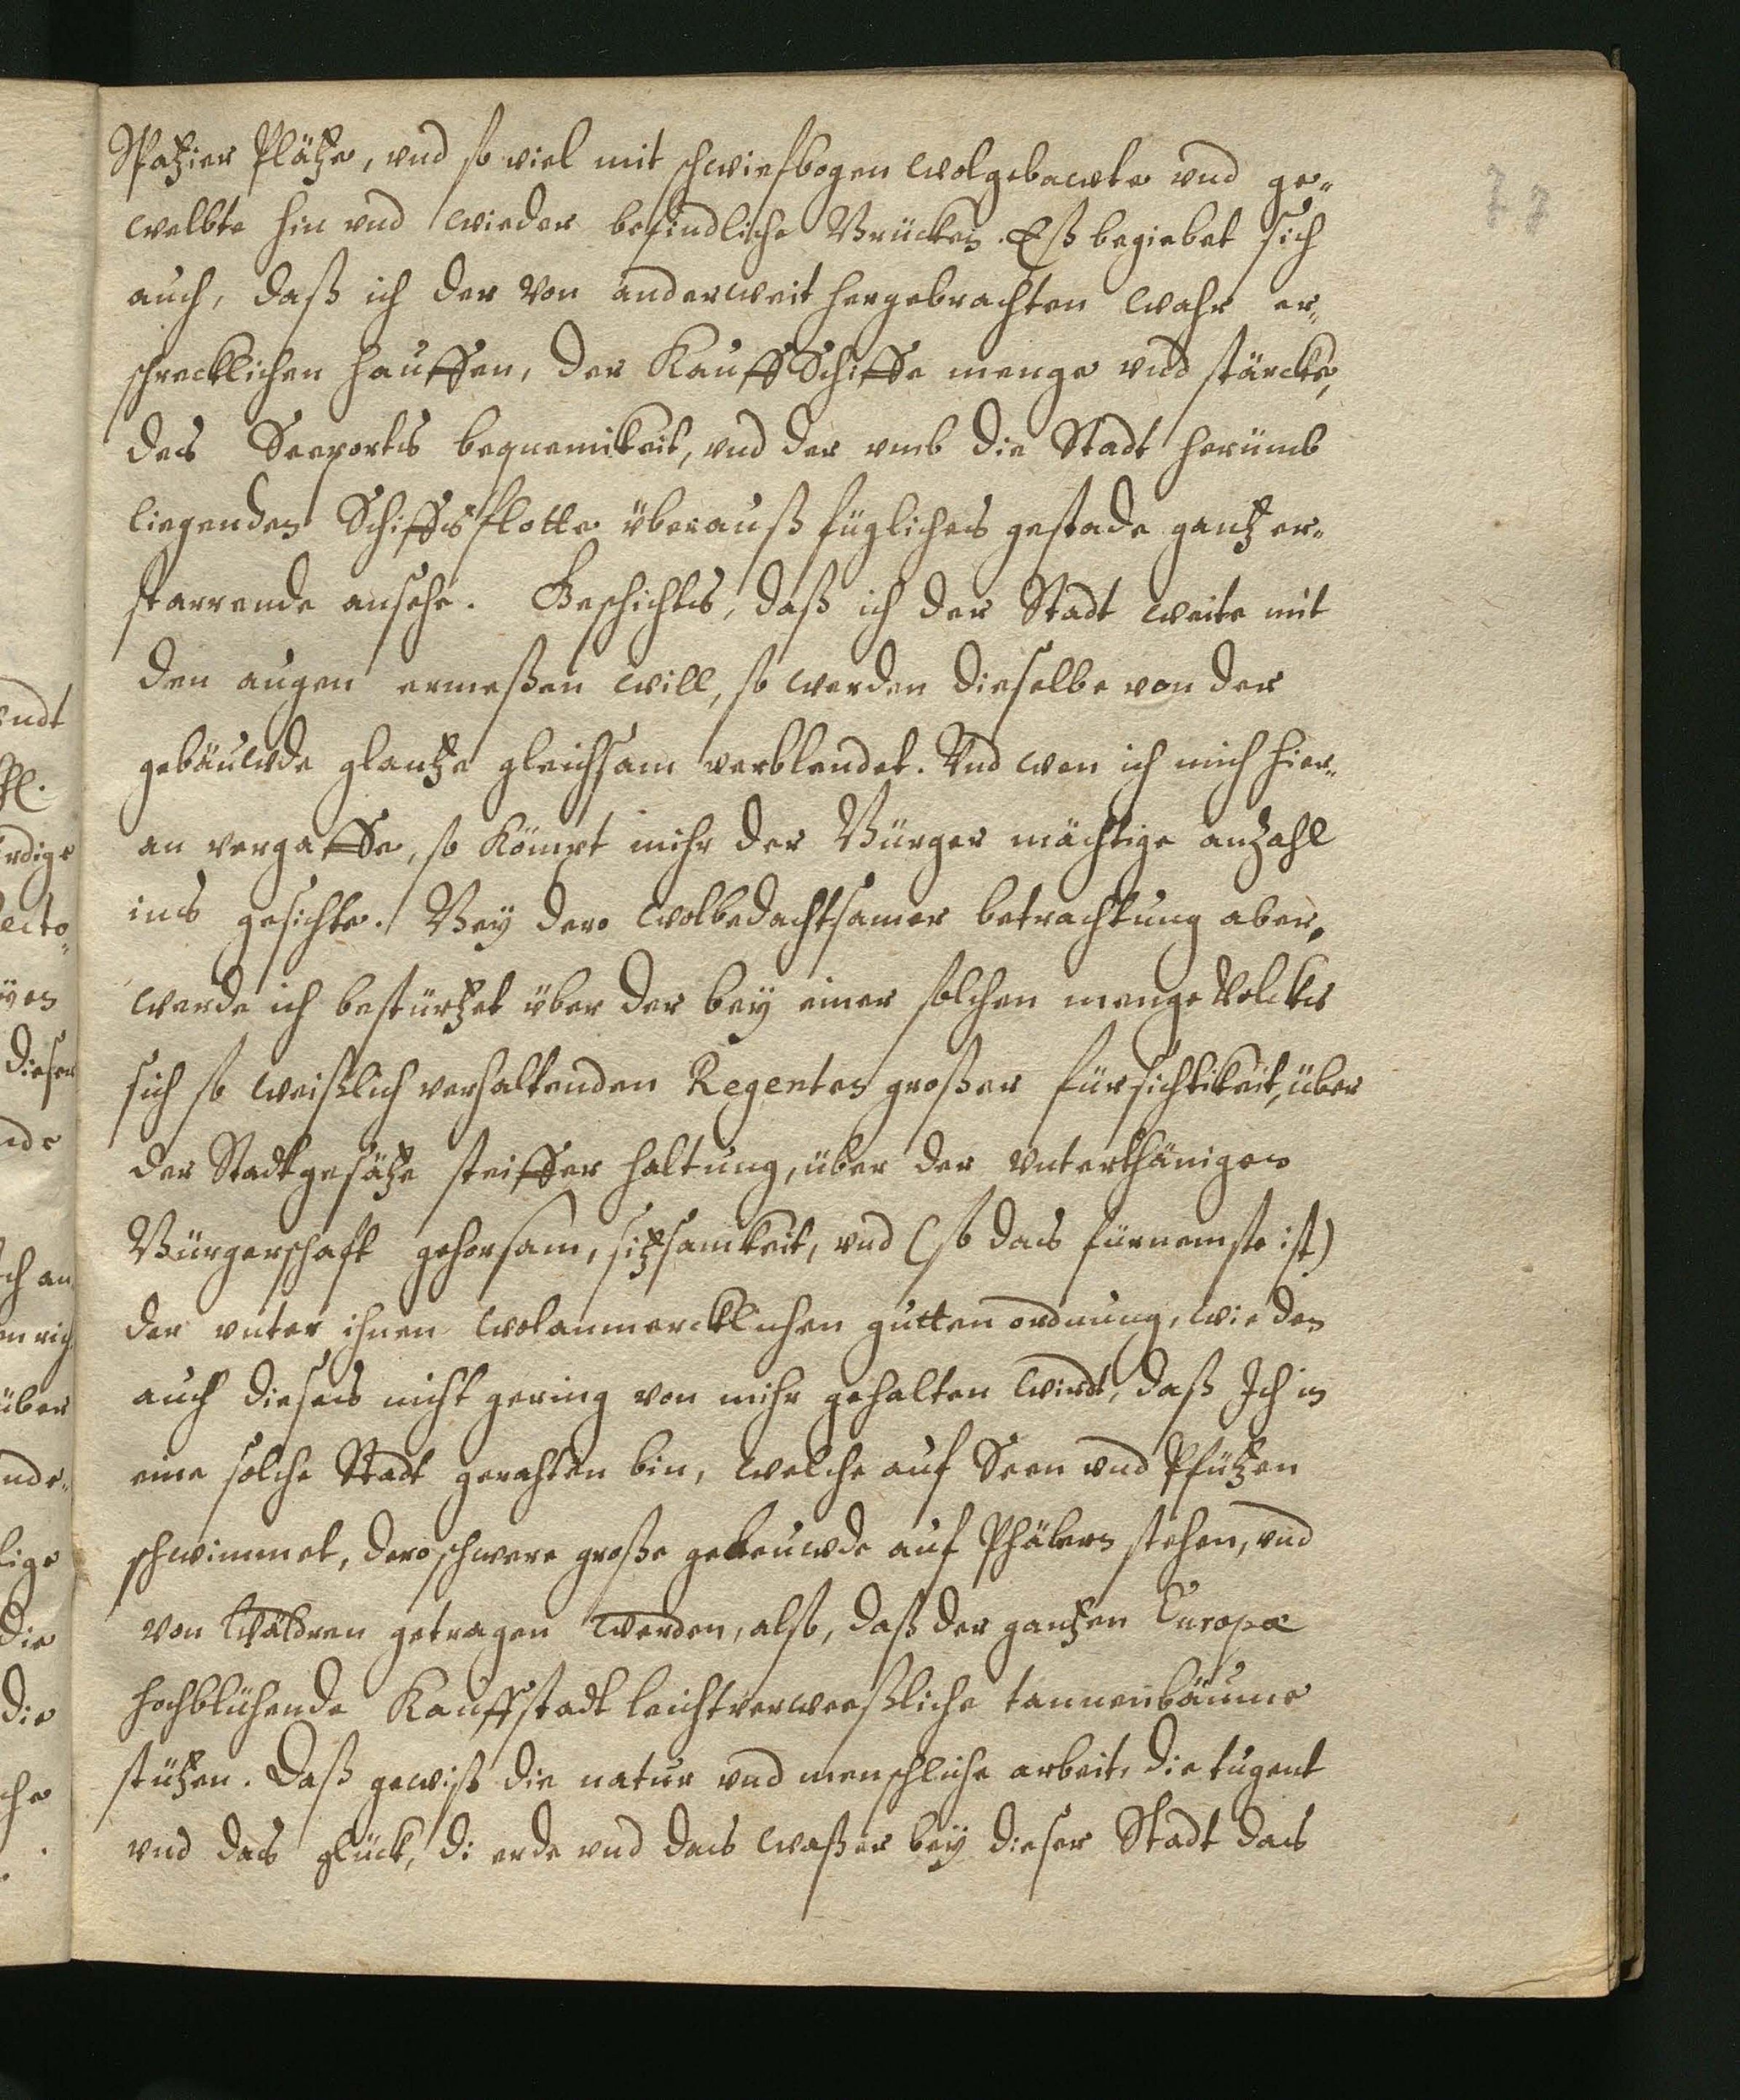 77
Spatzier Plätze, vnd so viel mit schwiefbogen wolgebawte vnd ge-
welbte hin vnd wieder befindliche Brücken. Eß begiebet sich
auch, daß ich der von anderweit hergebrachten wahr er-
schrecklichen hauffen, der Kauff Schiffe menge vnd stärcke,
des Seeports bequemikeit, vnd der vmb die Stadt herümb
liegenden Schiffsflotte überauß fügliches gestade gantz er-
starrende ansehe. Geschichts, daß ich der Stadt weite mit
den augen ermeßen will, so werden dieselbe von der
gebäuwde glantze gleichsam verblendet. Vnd wen ich mich hier-
an vergaffe, so kömpt mihr der Bürger mächtige anzahl
ins gesichte. Bey dero wolbedachtsamer betrachtung aber,
werde ich bestürtzet über der bey einer solchen menge Volcks
sich so weißlich verhaltenden Regenten großer fürsichtikeit, über
der Stadtgesätze steiffer haltung, über der vnterthänigen
Bürgerschaft gehorsam, sitzsamkeit, vnd (so das fürnemste ist)
der vnter ihnen wolanmercklichen gutten ordnung, wie den
auch dieses nicht gering von mihr gehalten wirdt, daß Ich in
eine solche Stadt gerahten bin, welche auf Seen vnd Pfützen
schwimmet, dero schwere große gebeuwde auf Phälern stehen, vnd
von Wäldren getragen werden, also, daß der gantzen Europæ
hochblühende Kauffstadt leichtverweeßliche tannenbäume
stützen. Daß gewiß die natur vnd menschliche arbeit, die tugent
vnd das glück, di erde vnd das waßer bey dieser Stadt das